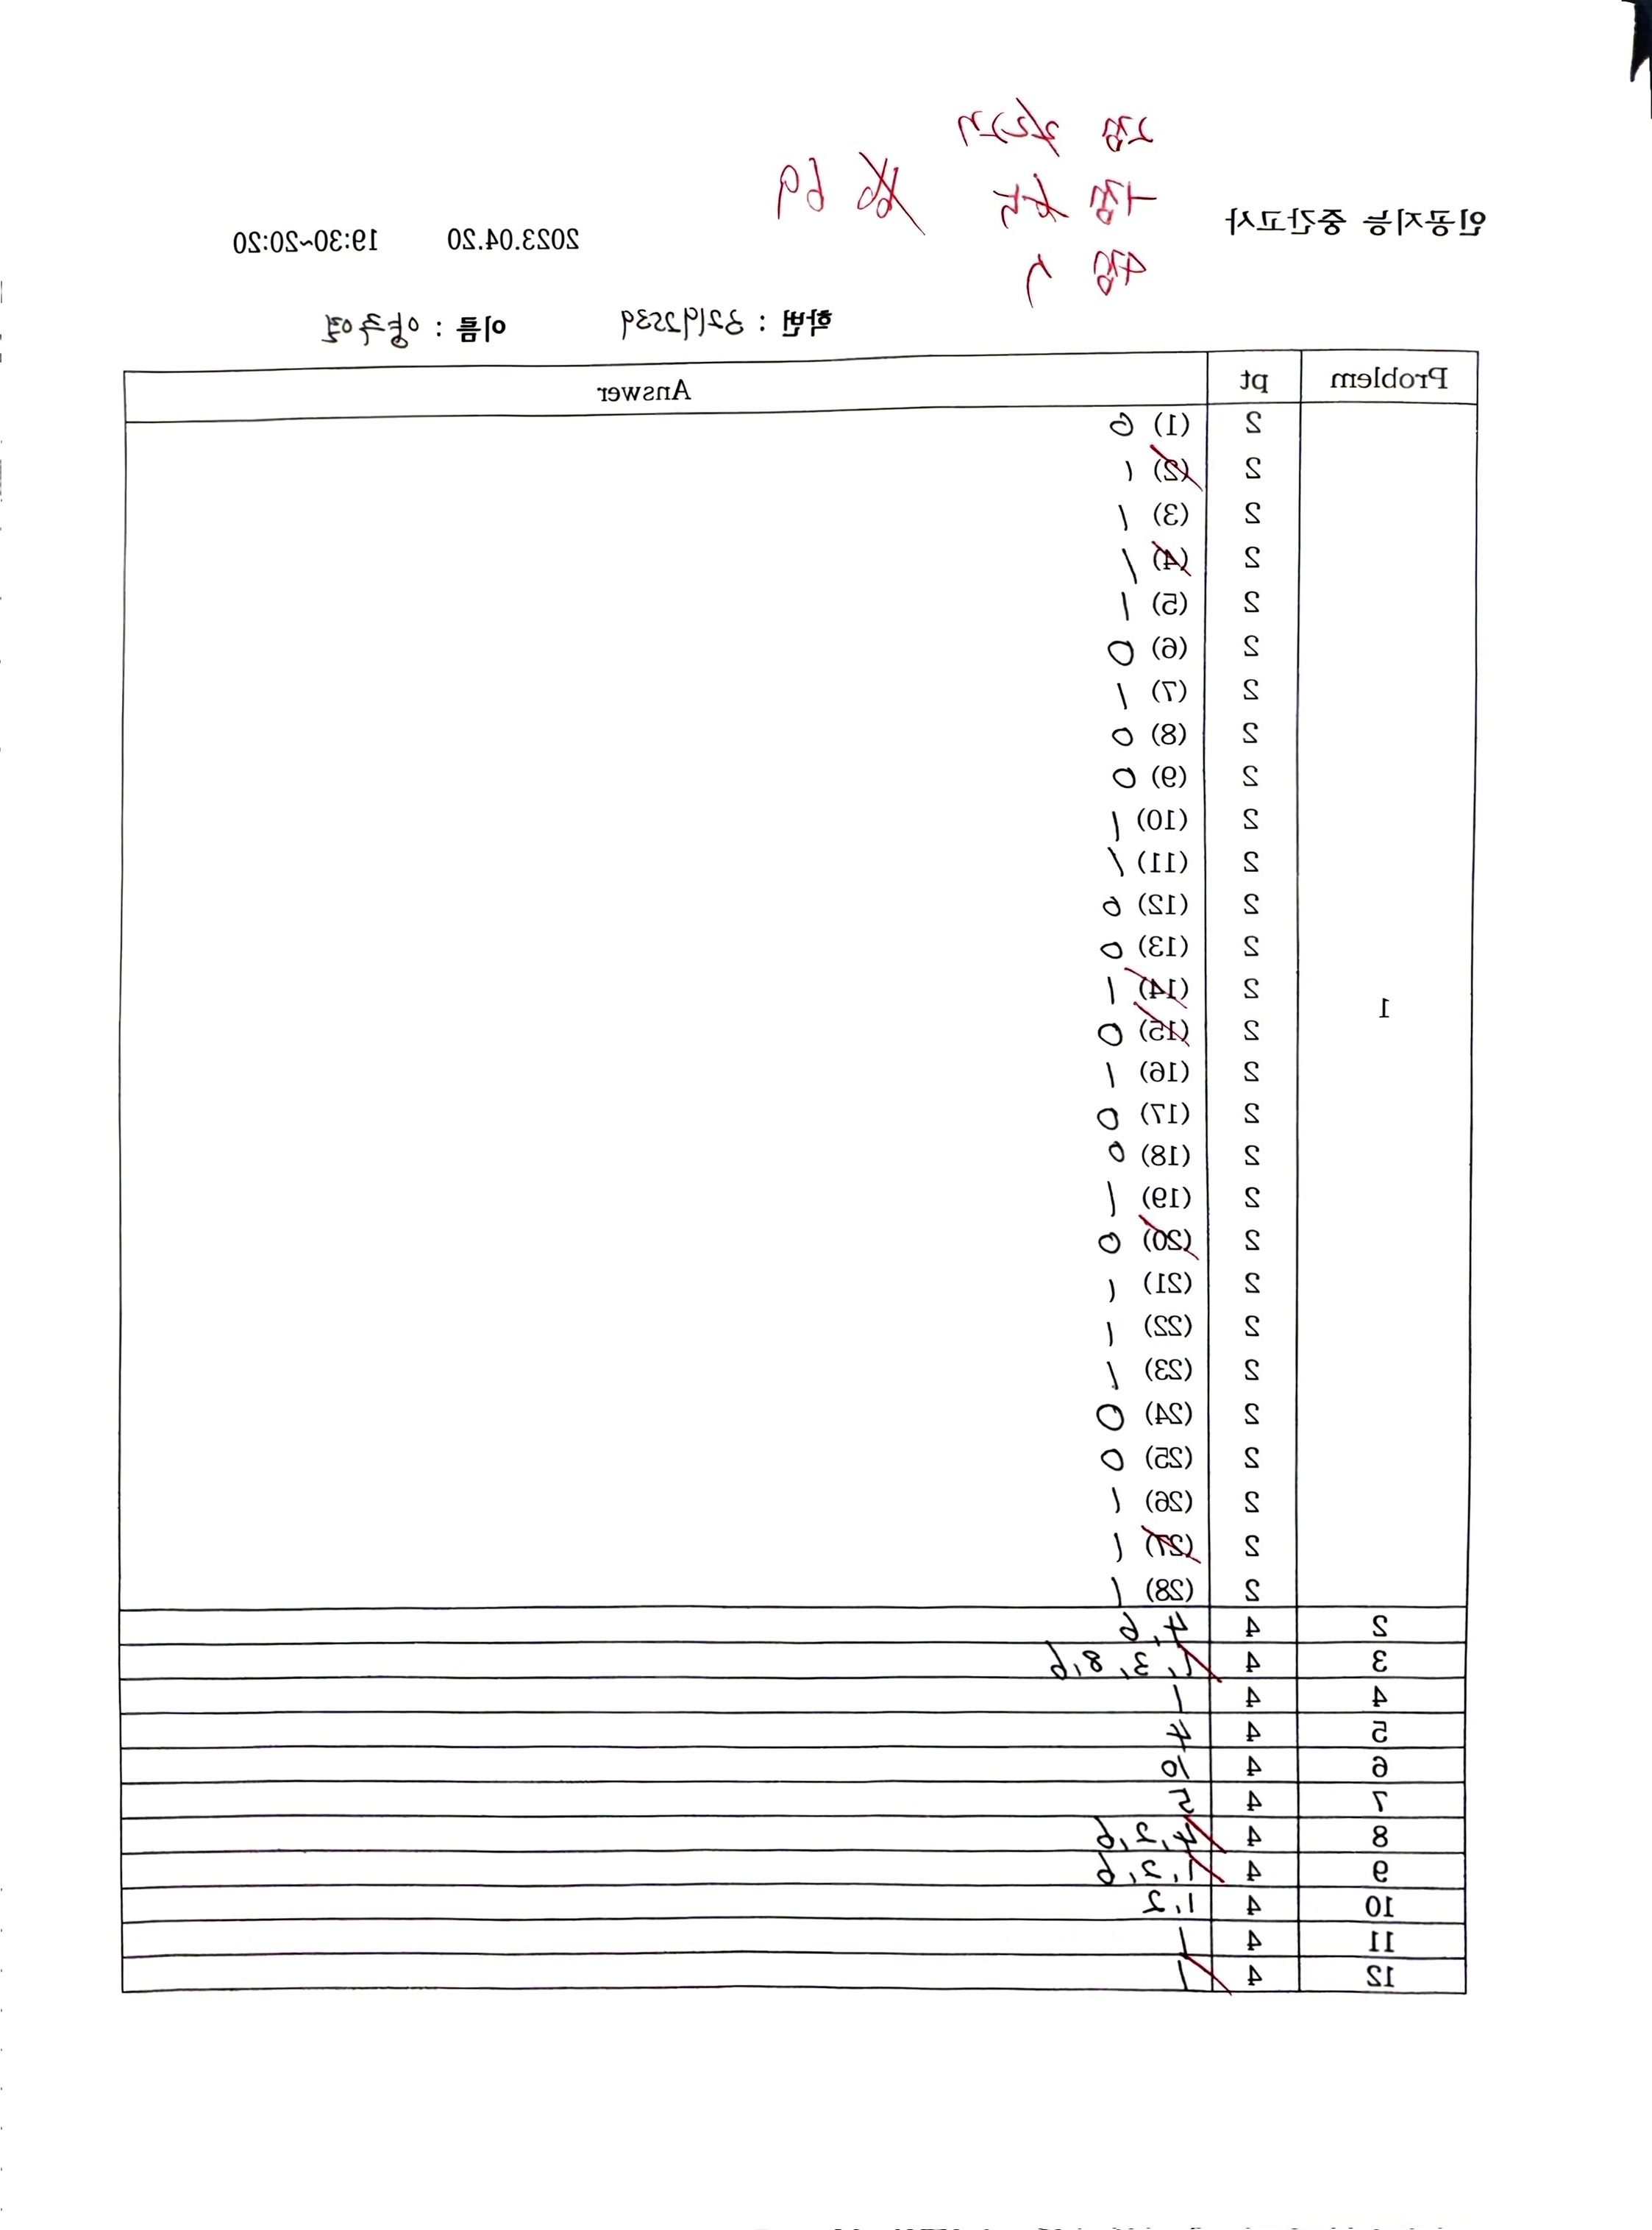 2점 7/27개
인공지능 중간고사 80 69 2023.04.20 19:30~20:20
4점 5
학번 : 32192539 이름 : 양주연
Problem pt Answer
1
2 (1) 0
2 (2) 1
2 (3) 1
2 (4) 1
2 (5) 1
2 (6) 0
2 (7) 1
2 (8) 0
2 (9) 0
2 (10) 1
2 (11) 1
2 (12) 0
2 (13) 0
2 (14) 1
2 (15) 0
2 (16) 1
2 (17) 0
2 (18) 0
2 (19) 1
2 (20) 0
2 (21) 1
2 (22) 1
2 (23) 1
2 (24) 0
2 (25) 0
2 (26) 1
2 (27) 1
2 (28) 1
2 4 7, 6
3 4 1, 3, 8, 6
4 4 1
5 4 7
6 4 10
7 4 5
8 4 7, 2, 6
9 4 1, 2, 6
10 4 1, 2
11 4 1
12 4 1